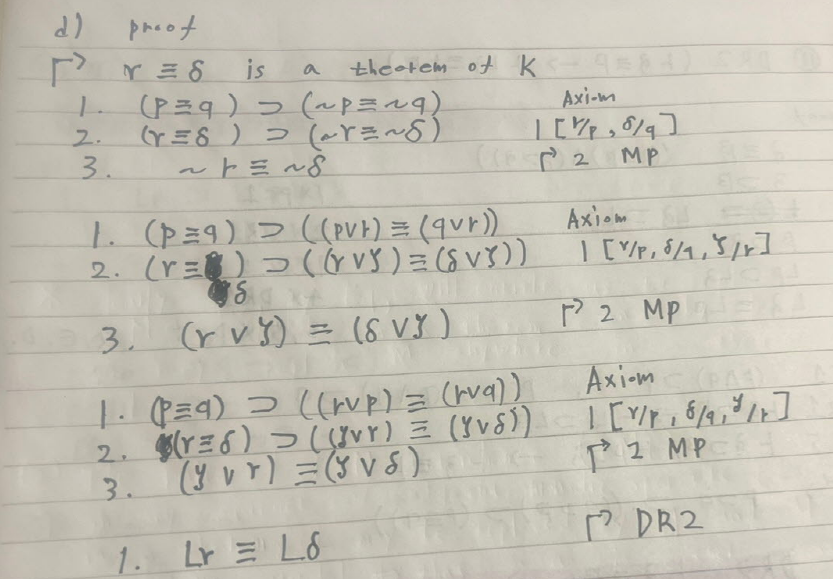 d) proof
┌> γ ≡ δ is a theorem of K
1. (p ≡ q) ⊃ (~p ≡ ~q) Axiom
2. (γ ≡ δ) ⊃ (~γ ≡ ~δ) 1 [γ/p, δ/q]
3. ~γ ≡ ~δ ┌> 2 MP
1. (p ≡ q) ⊃ ((p∨r) ≡ (q∨r)) Axiom
2. (γ ≡ δ) ⊃ ((γ∨ζ) ≡ (δ∨ζ)) 1 [γ/p, δ/q, ζ/r]
3. (γ ∨ ζ) ≡ (δ ∨ ζ) ┌> 2 MP
1. (p ≡ q) ⊃ ((r∨p) ≡ (r∨q)) Axiom
2. (γ ≡ δ) ⊃ ((ζ∨γ) ≡ (ζ∨δ)) 1 [γ/p, δ/q, ζ/r]
3. (ζ ∨ γ) ≡ (ζ ∨ δ) ┌> 2 MP
1. Lγ ≡ Lδ ┌> DR2